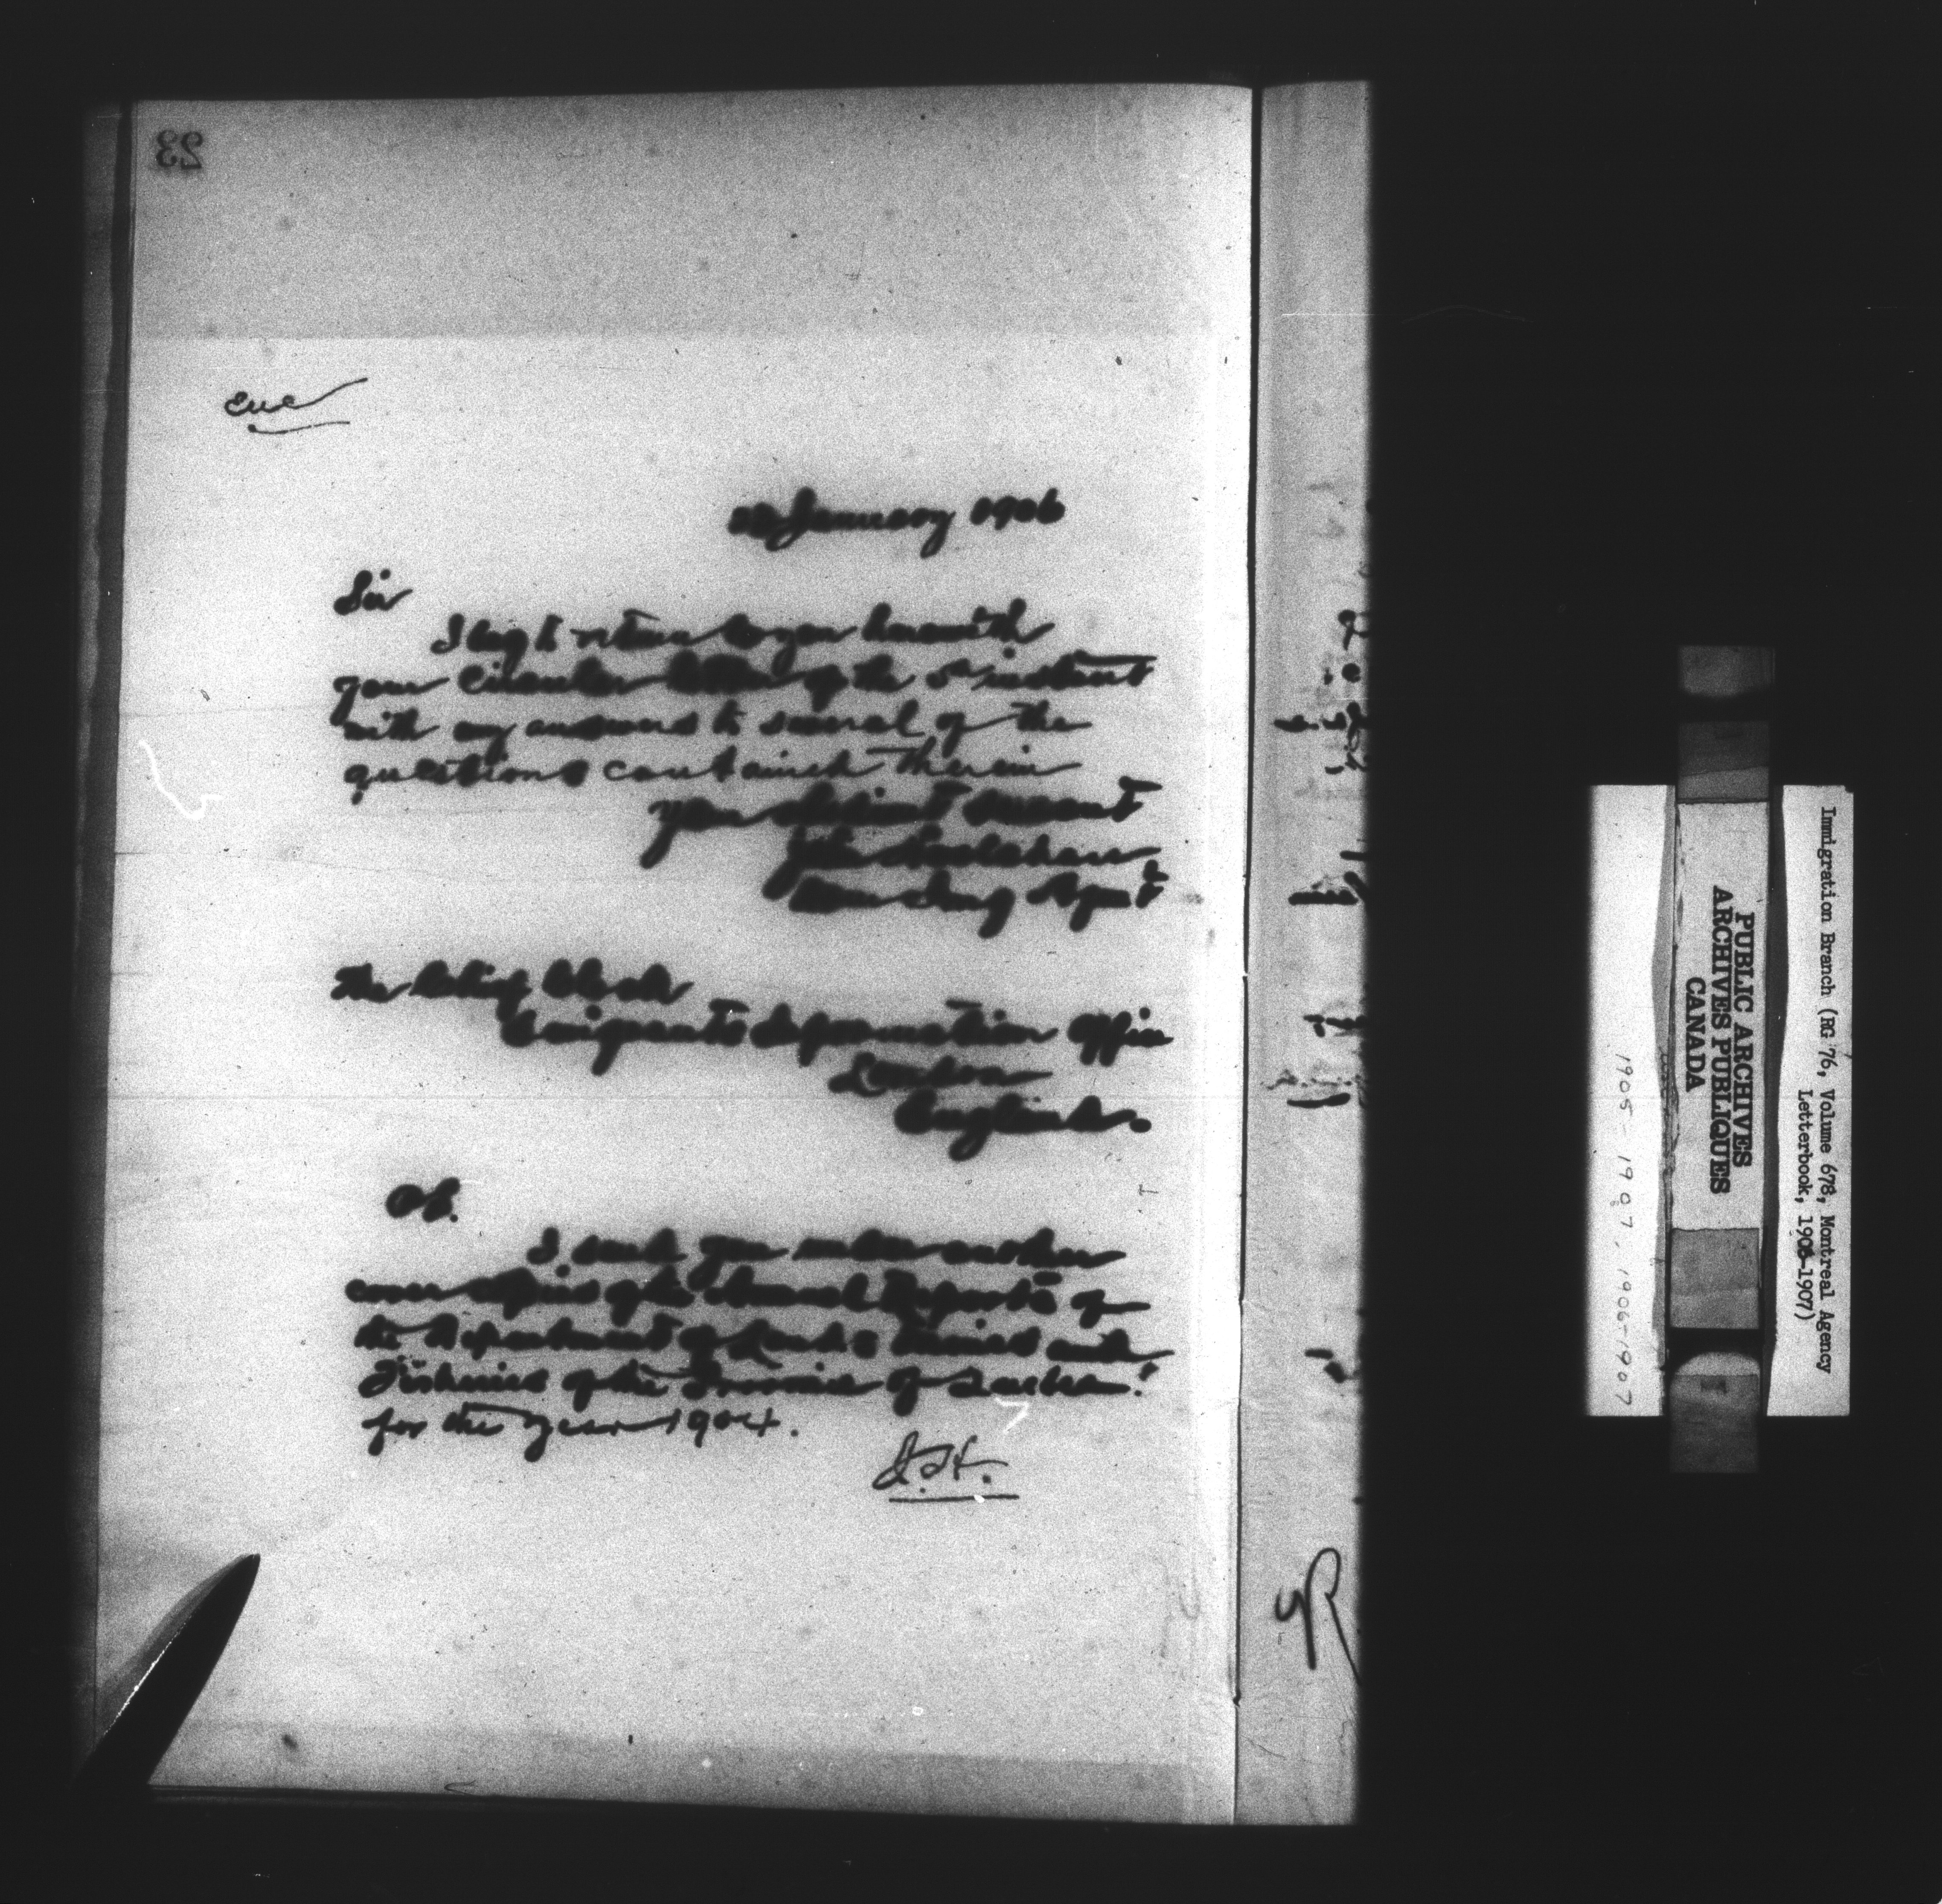 23
enc
January 1906
Sir
I beg to return to you herewith
your Circular letter of the 5th instant
with my answers to several of the
questions contained therein
your obedient servant
John Hoolahan
Dom Img Agent
The Acting Clerk
Emigrants Information Office
London
England.
P.S.
I send you under another
cover copies of the Annual Reports of
the Department of Lands Mines and
Fisheries of the Province of Quebec
for the year 1904.
J.H.
Immigration Branch (RG 76, Volume 678, Montreal Agency
Letterbook, 1906-1907)
PUBLIC ARCHIVES
ARCHIVES PUBLIQUES
CANADA
1905-1907, 1906-1907